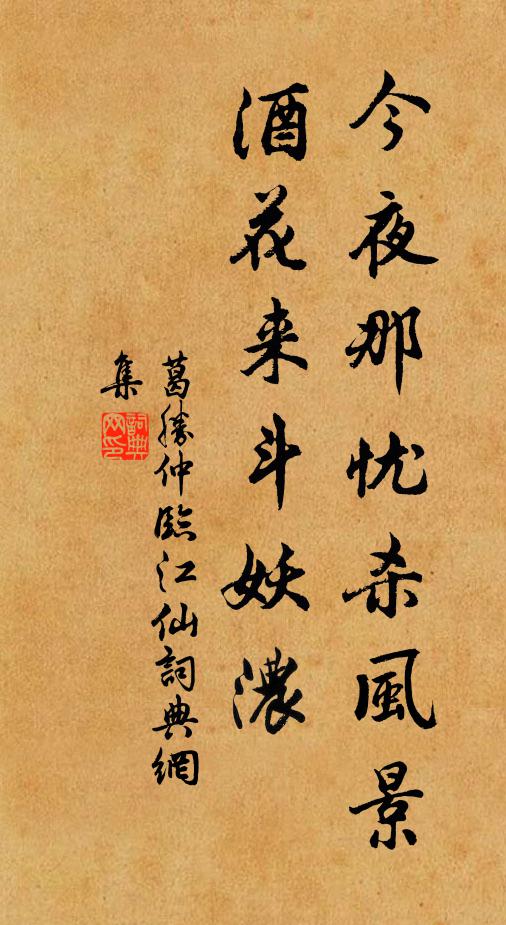 今夜那忧杀風景
酒花来斗妖濃
葛勝仲臨江仙詞典網
集
詞典
网印